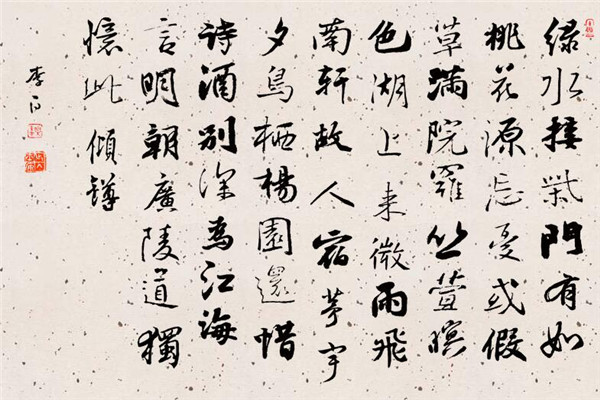 绿水接柴門有如
桃花源忘憂或假
草滿院羅丛萱暝
色湖上来微雨飛
南軒故人宿茅宇
夕鳥栖楊園還惜
诗酒别深為江海
言明朝廣陵道獨
憶此傾罇
李白